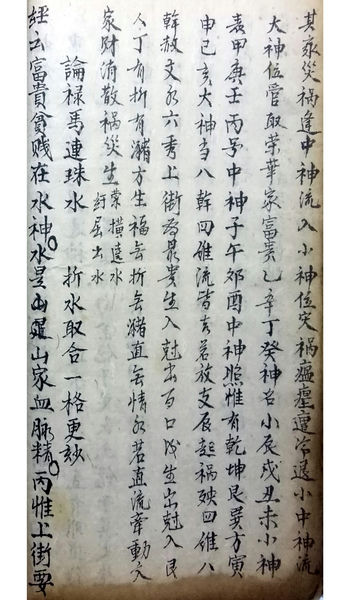 其家災禍逢中神流入小神位災禍瘟瘟遭冷退小中神流
大神位管取荣華家富貴乙辛丁癸神名小辰戌丑未小神
表甲庚壬丙号中神子午郊酉中神照惟有乾坤艮巽方寅
申巳亥大神当八幹四维流皆吉若放支辰起禍殃四维八
幹放文水六秀上街为最貴生入尅出百口成生出尅入艮
人丁有折有瀦方生福无折无瀦直无情水若直流牵動文
家財消散禍災生縈横遶水紆居出水
論禄馬連珠水 折水取合一格更妙
經云富貴貧贱在水神水是山家血脉精丙惟上街要